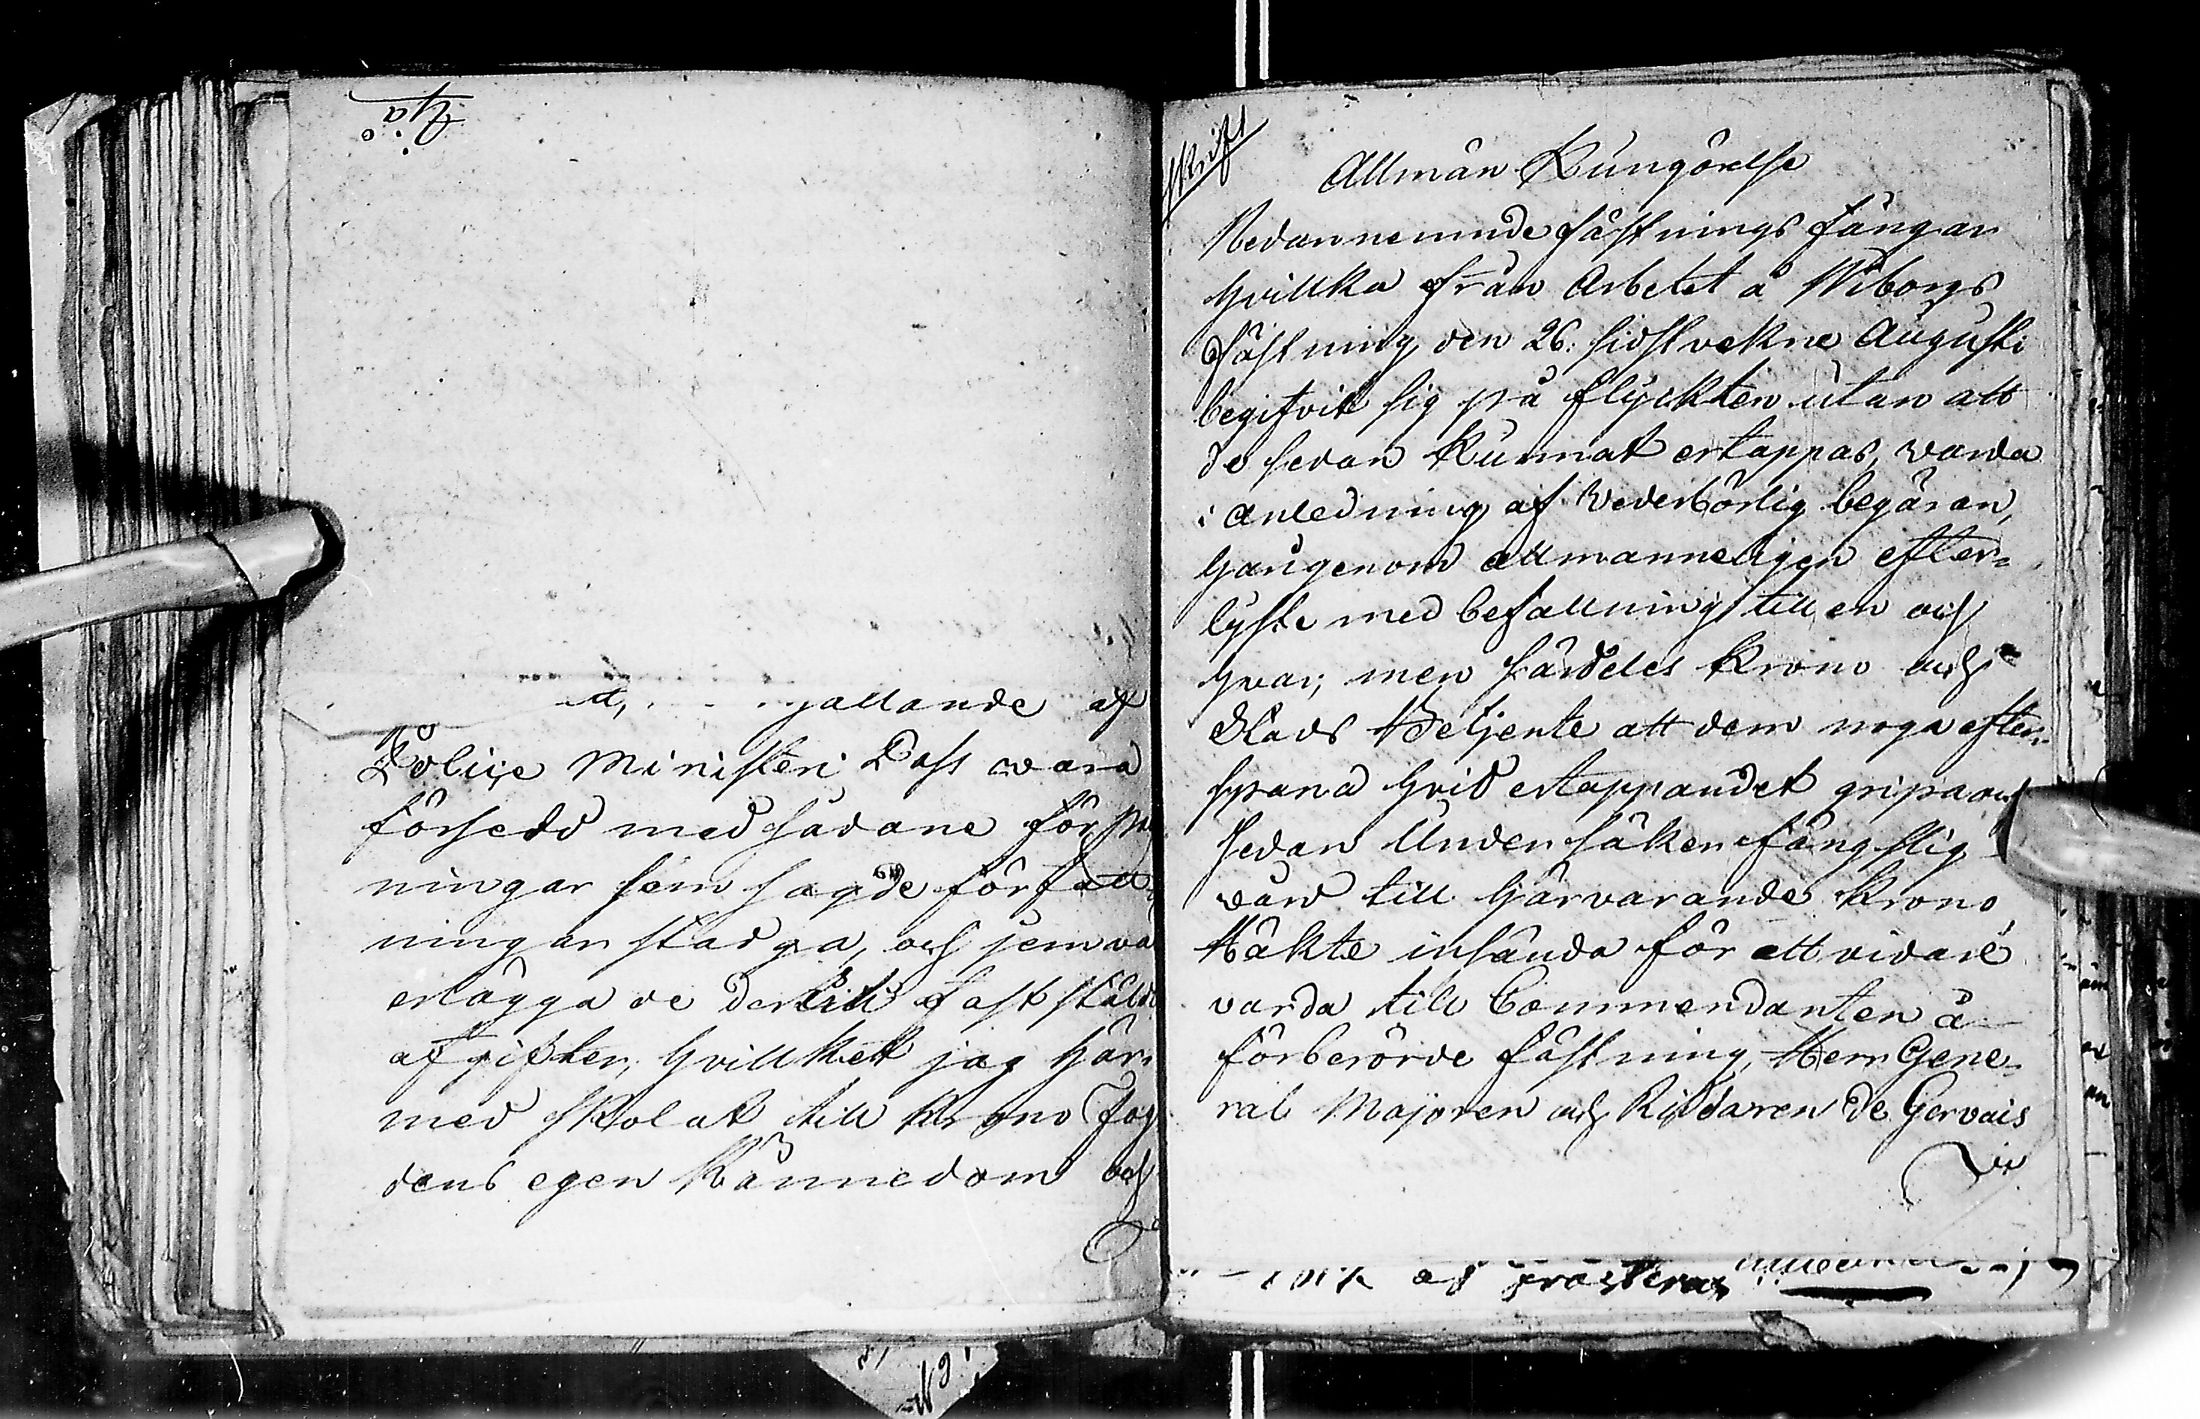 gällande af
Police Ministeri Pass wara
försedd med sådane förpas
ningar som sagde författ
ningar stadga, och jemwäl
erlägga de dertill fastställde
afgifter, hvillket jag här
med skolat till Krono Fog
dens egen kännedom och
skrift
Allmän Kungörelse
Nedannemnde fästnings fångar
hvillka från arbetet å Wiborgs
Fästning den 26. sidstvekne Augusti
begifvit sig på flyckten utan att
de sedan kunnat ertappas, warda
i anledning af vederbörlig begäran,
härigenom allmanneligen efter=
lyste med befallning till en och
hvar, men särdeles Krono och
Stads Betjente att dem noga efter=
spana hvid ertappandet gripa och
sedan under säker fångslig
vård till härvarande Krono
Häkte insända för att vidare
varda till Commendanten å
förberörde fästning, Herr Gene=
ral Majoren och Riddaren de Gervais
af